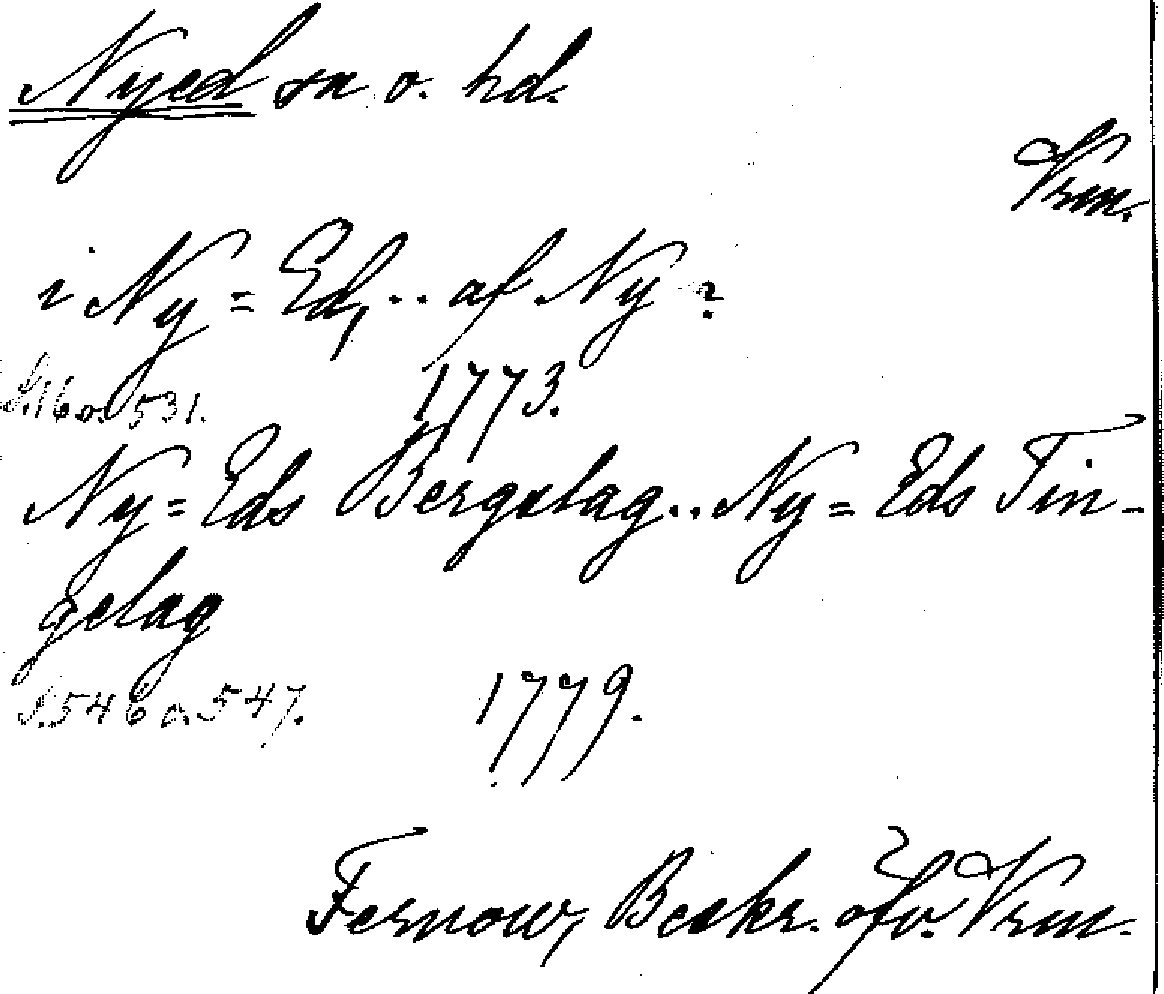 Nyed sn o. hd.
Vrm.
i Ny = Ed, .. af Ny ?
S. 16 o. 531. 1773.
Ny = Eds Bergslag .. Ny = Eds Tin-
gelag
S. 546 o. 547. 1779.
Fernow, Beskr. öfv. Vrm.